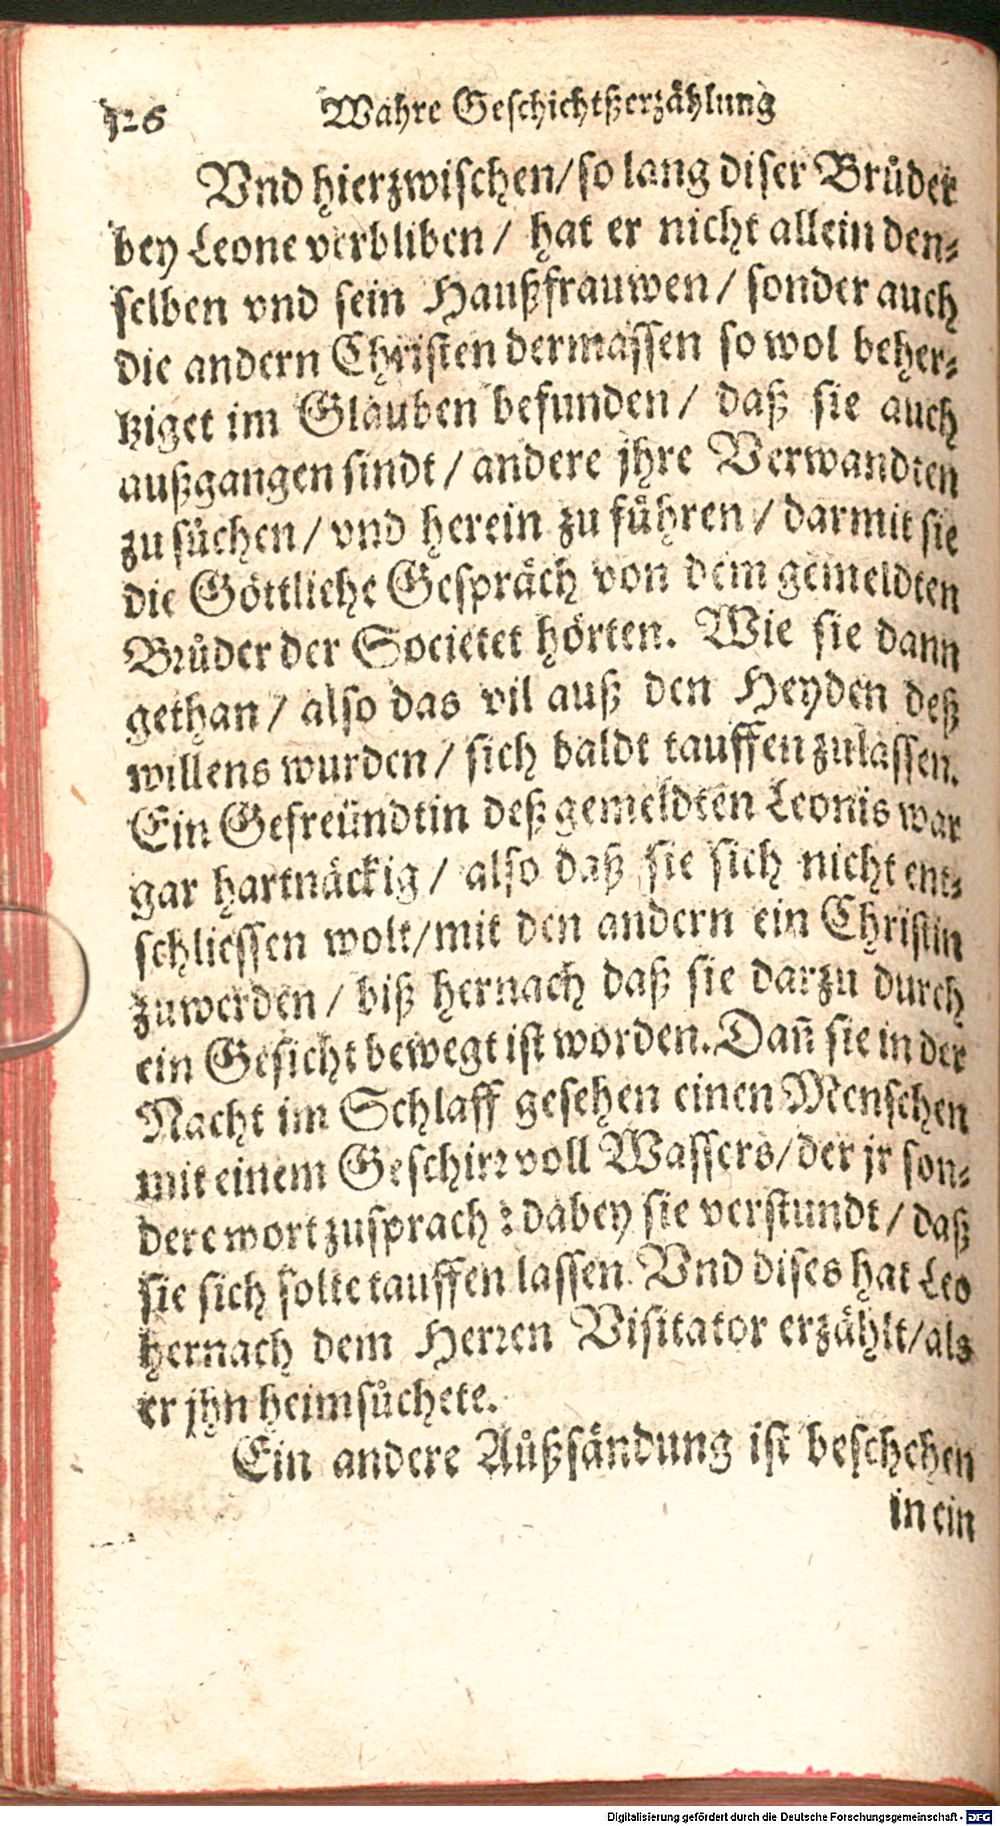 126 Wahre Geschichtßerzählung
Vnd hierzwischen/ so lang diser Brůder
bey Leone verbliben/ hat er nicht allein den-
selben vnd sein Haußfrauwen/ sonder auch
die andern Christen dermassen so wol beher-
tziget im Glauben befunden/ daß sie auch
außgangen sindt/ andere jhre Verwandten
zu sůchen/ vnd herein zu führen/ darmit sie
die Göttliche Gespräch von dem gemeldten
Brůder der Societet hörten. Wie sie dann
gethan/ also das vil auß den Heyden deß
willens wurden/ sich baldt tauffen zulassen.
Ein Gefreündtin deß gemeldten Leonis war
gar hartnäckig/ also daß sie sich nicht ent-
schliessen wolt/ mit den andern ein Christin
zuwerden/ biß hernach daß sie darzu durch
ein Gesicht bewegt ist worden. Dañ sie in der
Nacht im Schlaff gesehen einen Menschen
mit einem Geschirr voll Wassers/ der jr son-
dere wort zusprach: dabey sie verstundt/ daß
sie sich solte tauffen lassen. Vnd dises hat Leo
hernach dem Herren Visitator erzählt/ als
er jhn heimsůchete.
Ein andere Außsändung ist beschehen
in ein
Digitalisierung gefördert durch die Deutsche Forschungsgemeinschaft - DFG